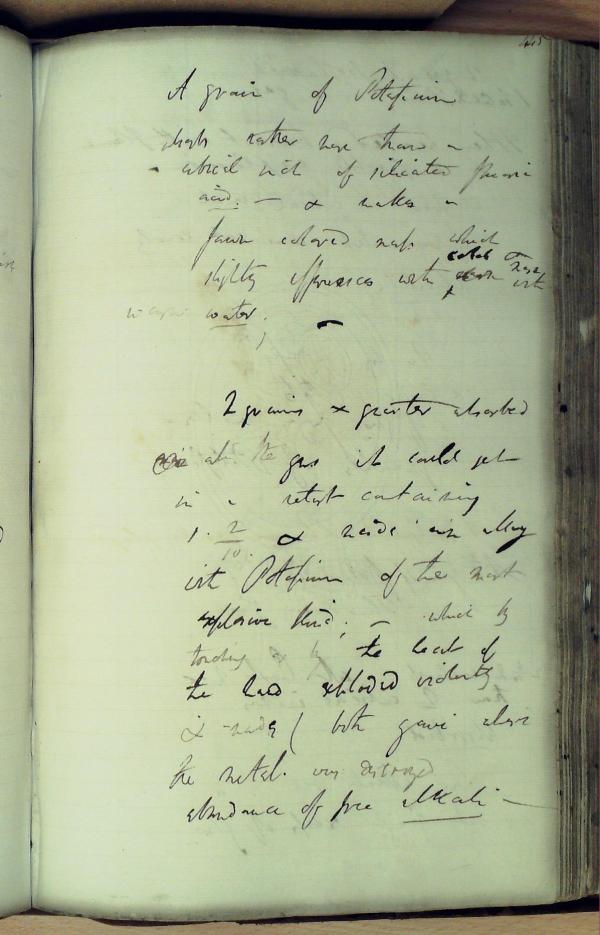 445
A grain of Potassium
absorbs rather more than a
cubical inch of silicated fluoric
acid. — & makes a
fawn colored mass which
slightly effervesces with
water;
2 grains & quarter absorbed
all the gas it could get
in a retort containing
1. 2/10. & made an alloy
with Potassium of the most
explosive kind; — which by
touching by the heat of
the hand exploded violently
& made ( both gave alkali
the metal. was destroyed
abundance of free alkali —